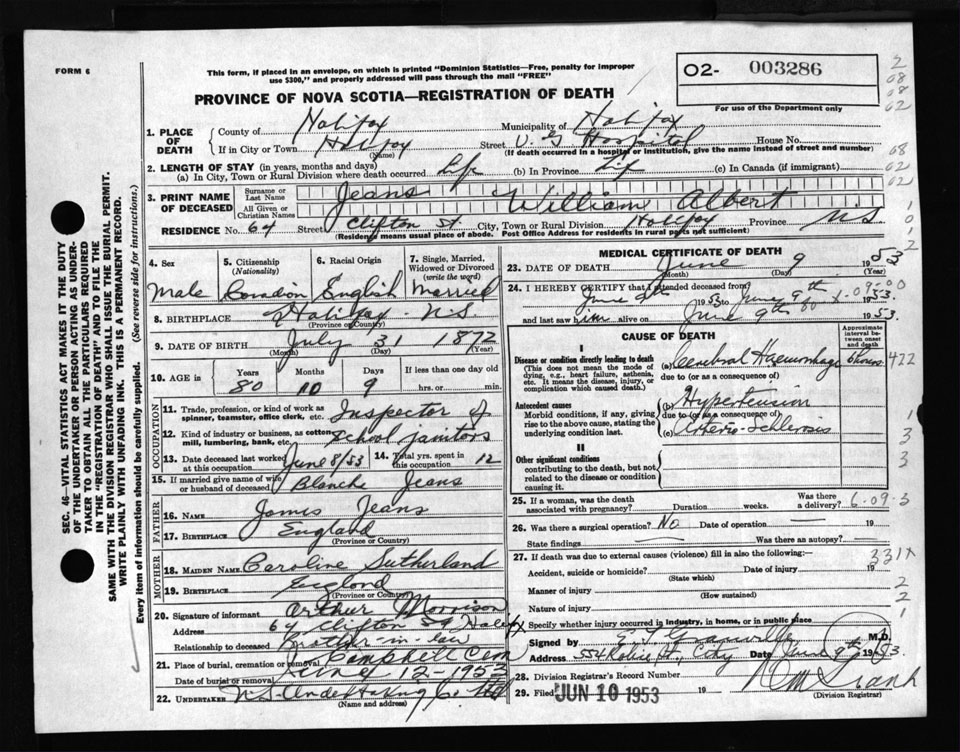 FORM 6
This form, if placed in an envelope, on which is printed "Dominion Statistics—Free, penalty for improper
use $300," and properly addressed will pass through the mail "FREE"
O2- 003286
For use of the Department only
PROVINCE OF NOVA SCOTIA—REGISTRATION OF DEATH
1. PLACE OF DEATH
County of Halifax Municipality of Halifax
If in City or Town Halifax (Name) Street V. G. Hospital House No.
(If death occurred in a hospital or institution, give the name instead of street and number)
2. LENGTH OF STAY (in years, months and days)
(a) In City, Town or Rural Division where death occurred Life (b) In Province Life (c) In Canada (if immigrant)
3. PRINT NAME OF DECEASED
Surname or Last Name Jeans
All Given or Christian Names William Albert
RESIDENCE No. 64 Street Clifton St. City, Town or Rural Division Halifax Province N.S.
(Residency means usual place of abode. Post Office Address for residents in rural parts not sufficient)
4. Sex Male
5. Citizenship (Nationality) Canadian
6. Racial Origin English
7. Single, Married, Widowed or Divorced (write the word) Married
8. BIRTHPLACE Halifax N.S.
(Province or Country)
9. DATE OF BIRTH July 31 1872
(Month) (Day) (Year)
10. AGE in Years 80 Months 10 Days 9 If less than one day old
hrs. or min.
OCCUPATION
11. Trade, profession, or kind of work as spinner, teamster, office clerk, etc. Inspector of
12. Kind of industry or business, as cotton mill, lumbering, bank, etc. School janitors
13. Date deceased last worked at this occupation June 8/53 14. Total yrs. spent in this occupation 12
15. If married give name of wife or husband of deceased Blanche Jeans
FATHER
16. NAME James Jeans
17. BIRTHPLACE England
(Province or Country)
MOTHER
18. MAIDEN NAME Caroline Sutherland
19. BIRTHPLACE England
(Province or Country)
20. Signature of informant Arthur Morrison
Address 64 Clifton St Halifax
Relationship to deceased Brother-in-law
21. Place of burial, cremation or removal Campbell Cem
Date of burial or removal June 12-1953
22. UNDERTAKER N.S. Undertaking Co Ltd
(Name and address)
MEDICAL CERTIFICATE OF DEATH
23. DATE OF DEATH June 9 1953
(Month) (Day) (Year)
24. I HEREBY CERTIFY that I attended deceased from
June 9th 1953 to June 9th 1953.
and last saw him alive on June 9th 1953.
CAUSE OF DEATH
Approximate interval between onset and death
I
Disease or condition directly leading to death
(This does not mean the mode of dying, e.g., heart failure, asthenia, etc. It means the disease, injury, or complication which caused death.)
(a) Cerebral Haemorrhage
due to (or as a consequence of)
Antecedent causes
Morbid conditions, if any, giving rise to the above cause, stating the underlying condition last.
(b) Hypertension
due to (or as a consequence of)
(c) Arterio-Schlerosis
II
Other significant conditions
contributing to the death, but not related to the disease or condition causing it.
25. If a woman, was the death associated with pregnancy? Duration weeks. Was there a delivery?
26. Was there a surgical operation? No Date of operation 19
State findings Was there an autopsy?
27. If death was due to external causes (violence) fill in also the following:—
Accident, suicide or homicide? Date of injury 19
(State which)
Manner of injury
(How sustained)
Nature of injury
Specify whether injury occurred in industry, in home, or in public place
Signed by E. F. Granville M.D.
Address City Date June 9th 1953.
28. Division Registrar's Record Number
29. Filed JUN 10 1953 19
(Division Registrar)
SEC. 46—VITAL STATISTICS ACT MAKES IT THE DUTY
OF THE UNDERTAKER OR PERSON ACTING AS UNDER-
TAKER TO OBTAIN ALL THE PARTICULARS REQUIRED
IN THE "REGISTRATION OF DEATH" AND TO FILE THE
SAME WITH THE DIVISION REGISTRAR WHO SHALL ISSUE THE BURIAL PERMIT.
WRITE PLAINLY WITH UNFADING INK. THIS IS A PERMANENT RECORD.
Every item of information should be carefully supplied. (See reverse side for instructions.)
2
08
08
02
08
02
02
422
1
3
3
6-09-3
331X
2
2
1